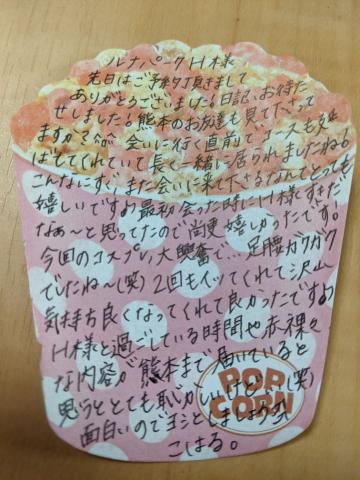 ルナパークH様
先日はご予約頂きまして
ありがとうございました!日記、お待た
せしました!熊本のお友達も見て下さって
ますか?会いに行く直前でコースも延
ばしてくれていて長く一緒に居られましたね!
こんなにすぐまた会いに来て下さるなんてとっても
嬉しいです!最初会った時にH様すきだ
なぁ〜と思ってたので尚更嬉しかったです。
今回のコスプレ、大興奮で…足腰ガクガク
でしたね〜(笑)2回もイッてくれて沢山
気持ち良くなってくれて良かったです!
H様と過ごしている時間や赤裸々
な内容が熊本まで届いていると
思うととても恥ずかしいけど…(笑)
面白いのでヨシとしましょう!
こはる。
POP
CORN